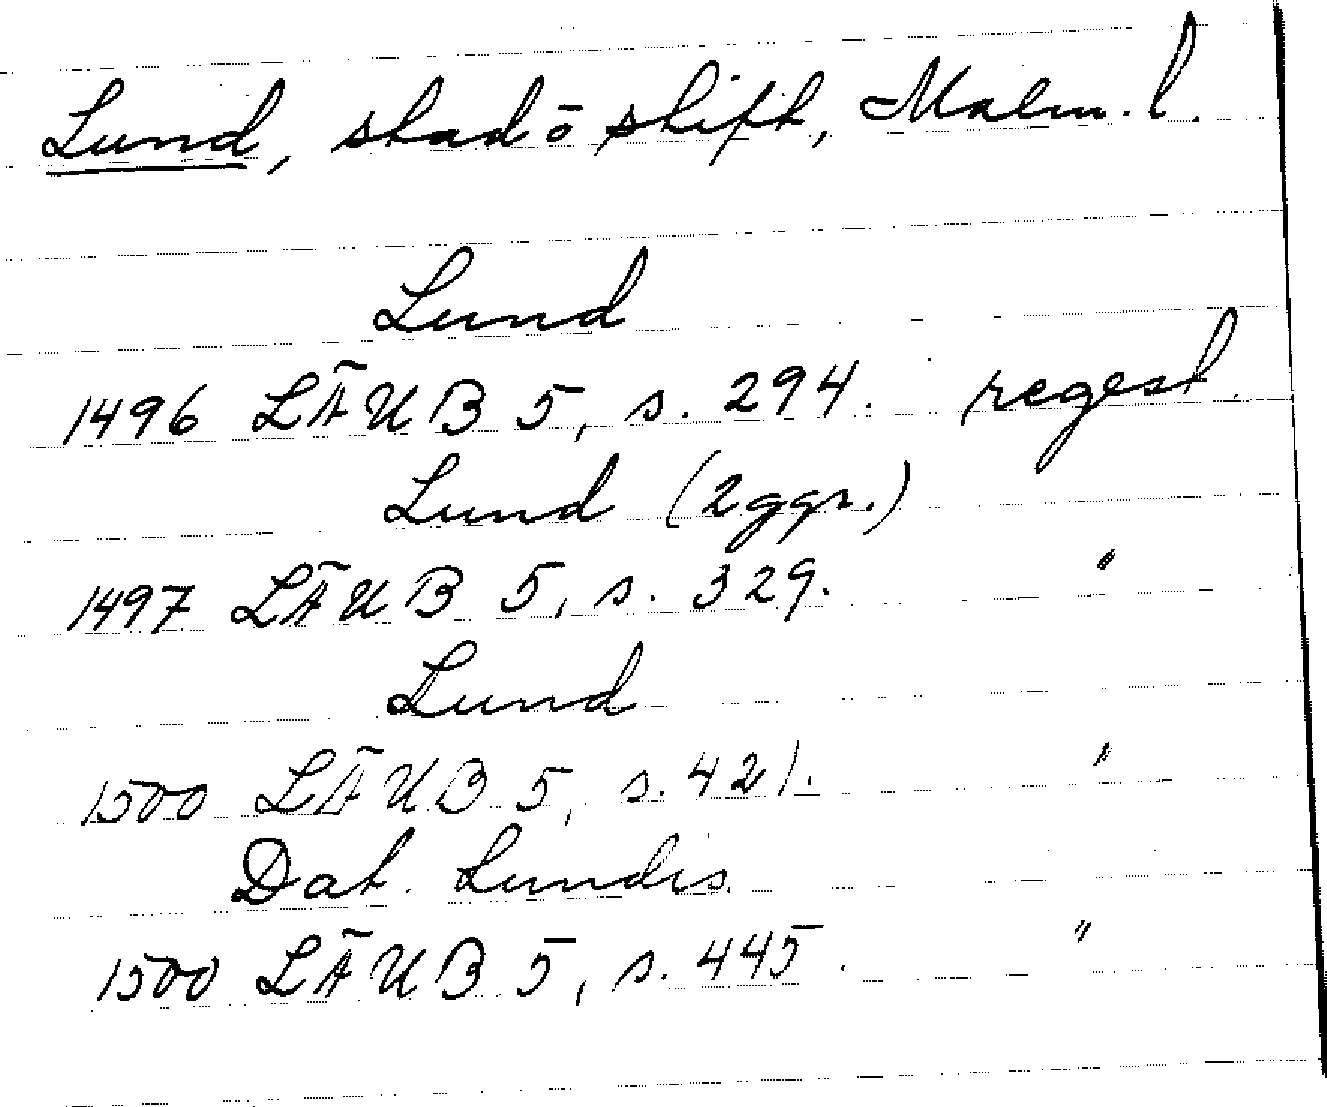 Lund, stad o stift, Malm. l.
Lund
1496 LÄUB 5, s. 294. regest.
Lund (2 ggr.)
1497 LÄUB 5, s. 329. "
Lund
1500 LÄUB 5, s. 421. "
Dat. Lundis
1500 LÄUB 5, s. 445. "